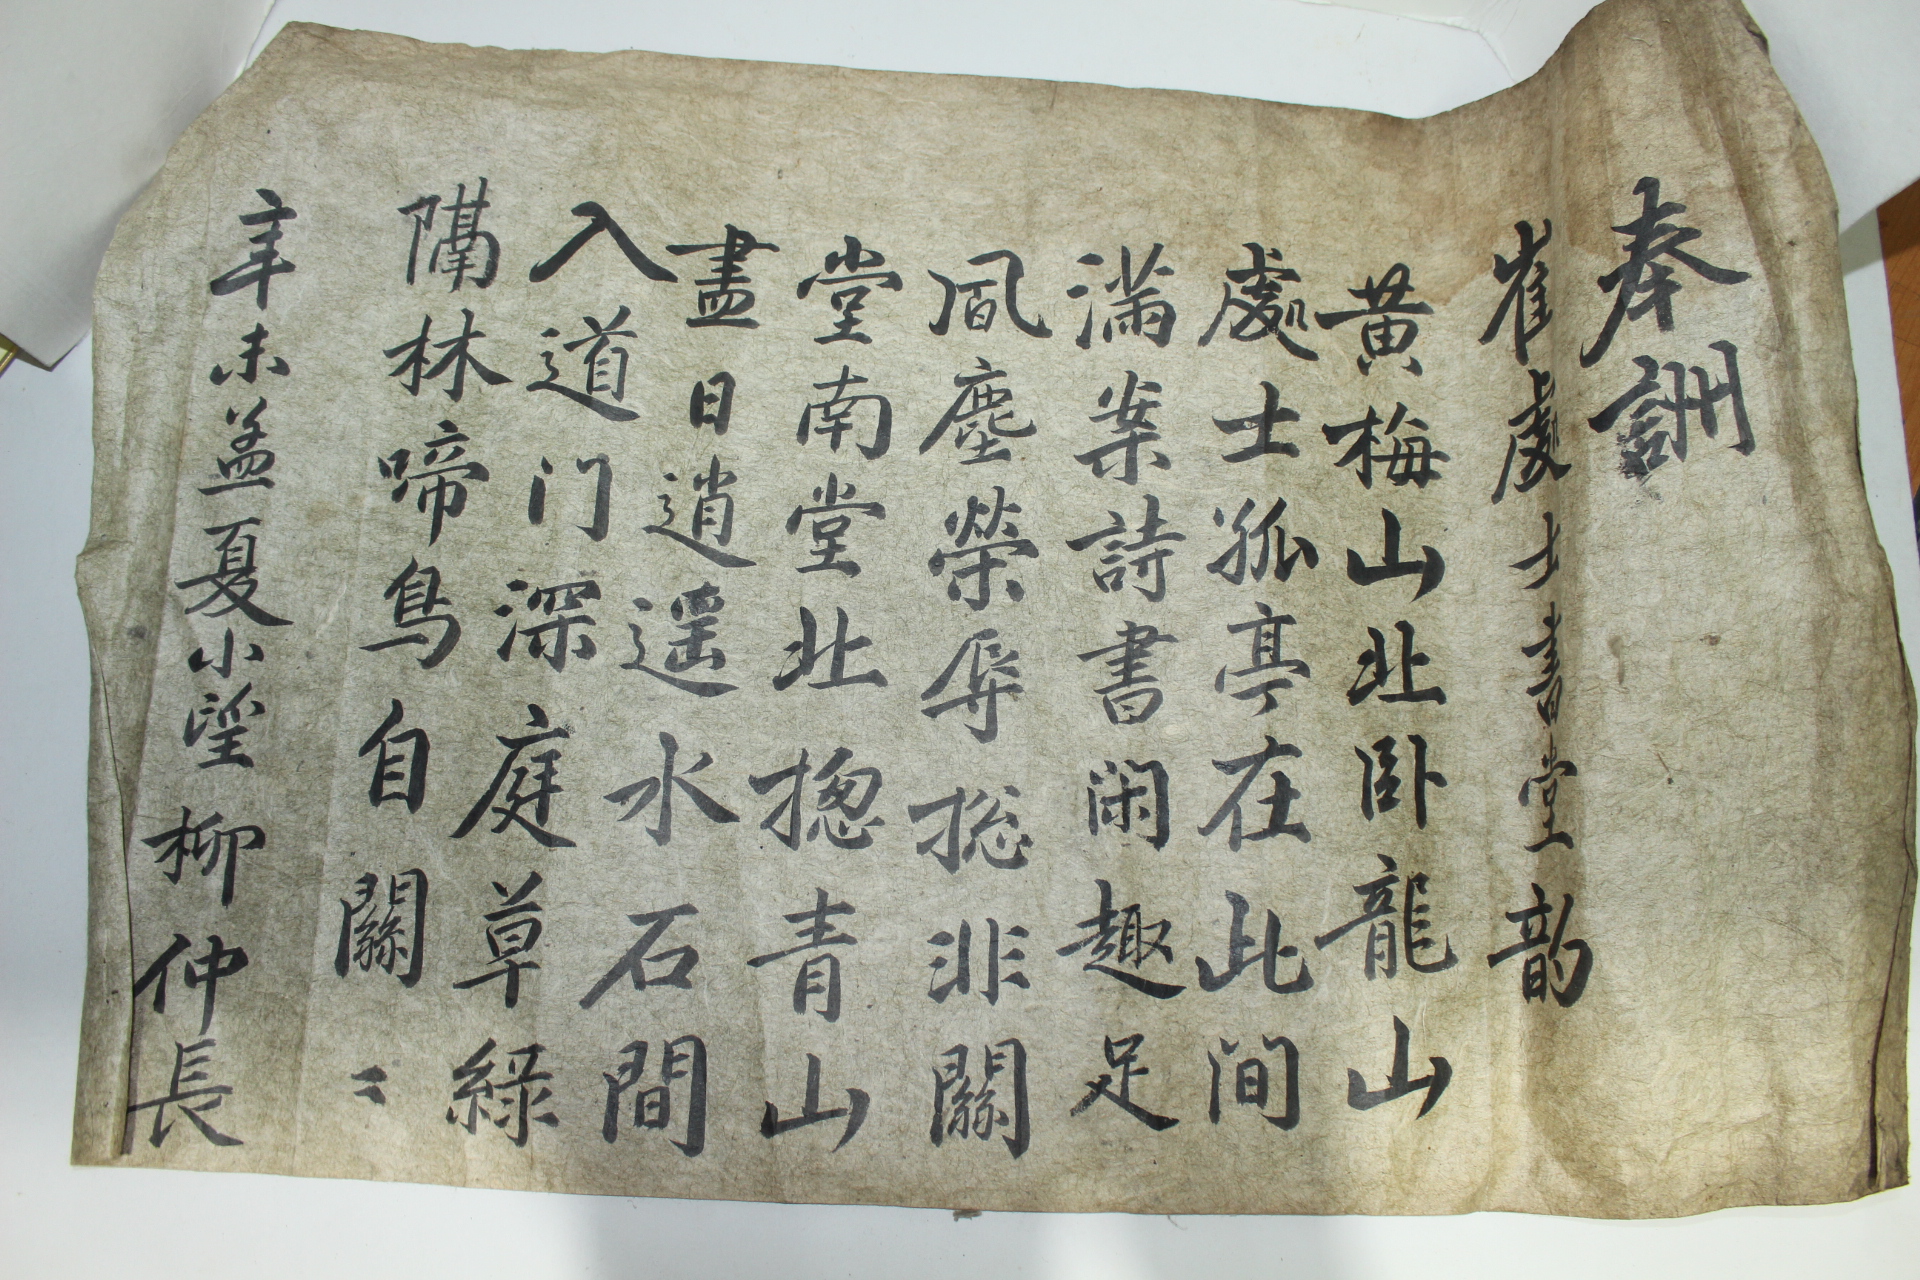 奉詶
崔處士書堂韵
黄梅山北卧龍山
處士孤亭在此間
滿案詩書闲趣足
風塵榮辱揔非關
堂南堂北揔青山
盡日逍遥水石間
入道门深庭草綠
隔林啼鳥自關〻
辛未孟夏小望柳仲長